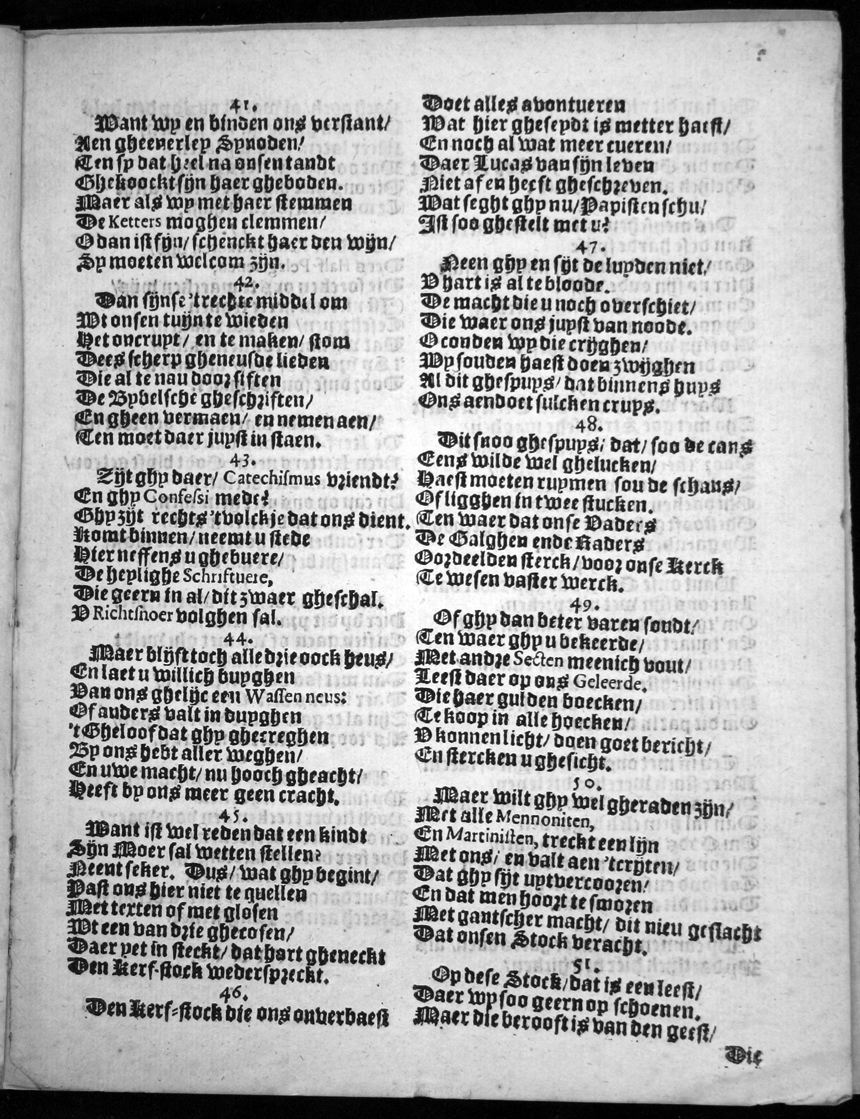 41.
Want wy en binden ons verstant/
Aen gheenerley Synoden/
Ten sy dat heel na onsen tandt
Ghekoockt sijn haer gheboden.
Maer als wy met haer stemmen
De Ketters moghen clemmen/
O dan ist fijn/ schenckt haer den wijn/
Sy moeten welcom zijn.
42.
Dan sijnse 'trechte middel om
Wt onsen tuijn te wieden
Het oncrupt/ en te maken/ stom
Dees scherp gheneusde lieden
Die al te nau doorsiften
De Bybelsche gheschriften/
En gheen vermaen/ en nemen aen/
Ten moet daer juyst in staen.
43.
Zijt ghy daer/ Catechismus vriendt?
En ghy Confessi mede?
Ghy zijt rechts 'tvolckje dat ons dient.
Komt binnen/ neemt u stede
Hier neffens u ghebuere/
De heylighe Schriftuere,
Die geern in al/ dit zwaer gheschal.
V Richtsnoer volghen sal.
44.
Maer blijft toch alle drie oock heus/
En laet u willich buyghen
Van ons ghelijc een Wassen neus:
Of anders valt in duyghen
't Gheloof dat ghy ghecreghen
By ons hebt aller weghen/
En uwe macht/ nu hooch gheacht/
Heeft by ons meer geen cracht.
45.
Want ist wel reden dat een kindt
Sijn Moer sal wetten stellen?
Neent seker. Dus/ wat ghy begint/
Past ons hier niet te quellen
Met texten of met glosen
Wt een van drie ghecosen/
Daer yet in steckt/ dat hart gheneckt
Den Kerf-stock wederspreckt.
46.
Den Kerf-stock die ons onverbaest
Doet alles avontueren
Wat hier gheseydt is metter haest/
En noch al wat meer cueren/
Daer Lucas van sijn leven
Niet af en heeft gheschreven.
Wat seght ghy nu/ Papisten schu/
Ist soo ghestelt met u?
47.
Neen ghy en sijt de luyden niet/
V hart is al te bloode.
De macht die u noch overschiet/
Die waer ons juyst van noode.
O conden wy die crijghen/
Wy souden haest doen zwijghen
Al dit ghespuys/ dat binnens huys
Ons aendoet sulcken cruys.
48.
Dit snoo ghespuys/ dat/ soo de cans
Eens wilde wel ghelucken/
Haest moeten ruymen sou de schans/
Of ligghen in twee stucken.
Ten waer dat onse Vaders
De Galghen ende Raders
Oordeelden sterck/ voor onse Kerck
Te wesen vaster werck.
49.
Of ghy dan beter varen soudt/
Ten waer ghy u bekeerde/
Met andre Secten meenich vout/
Leest daer op ons Geleerde.
Die haer gulden boecken/
Te koop in alle hoecken/
V konnen licht/ doen goet bericht/
En stercken u ghesicht.
50.
Maer wilt ghy wel gheraden zijn/
Met alle Mennoniten,
En Martinisten, treckt een lijn
Met ons/ en valt aen 'tcrijten/
Dat ghy sijt uytvercooren/
En dat men hoort te smoren
Met gantscher macht/ dit nieu geslacht
Dat onsen Stock veracht.
51.
Op dese Stock/ dat is een leest/
Daer wy soo geern op schoenen.
Maer die berooft is van den geest/
Die